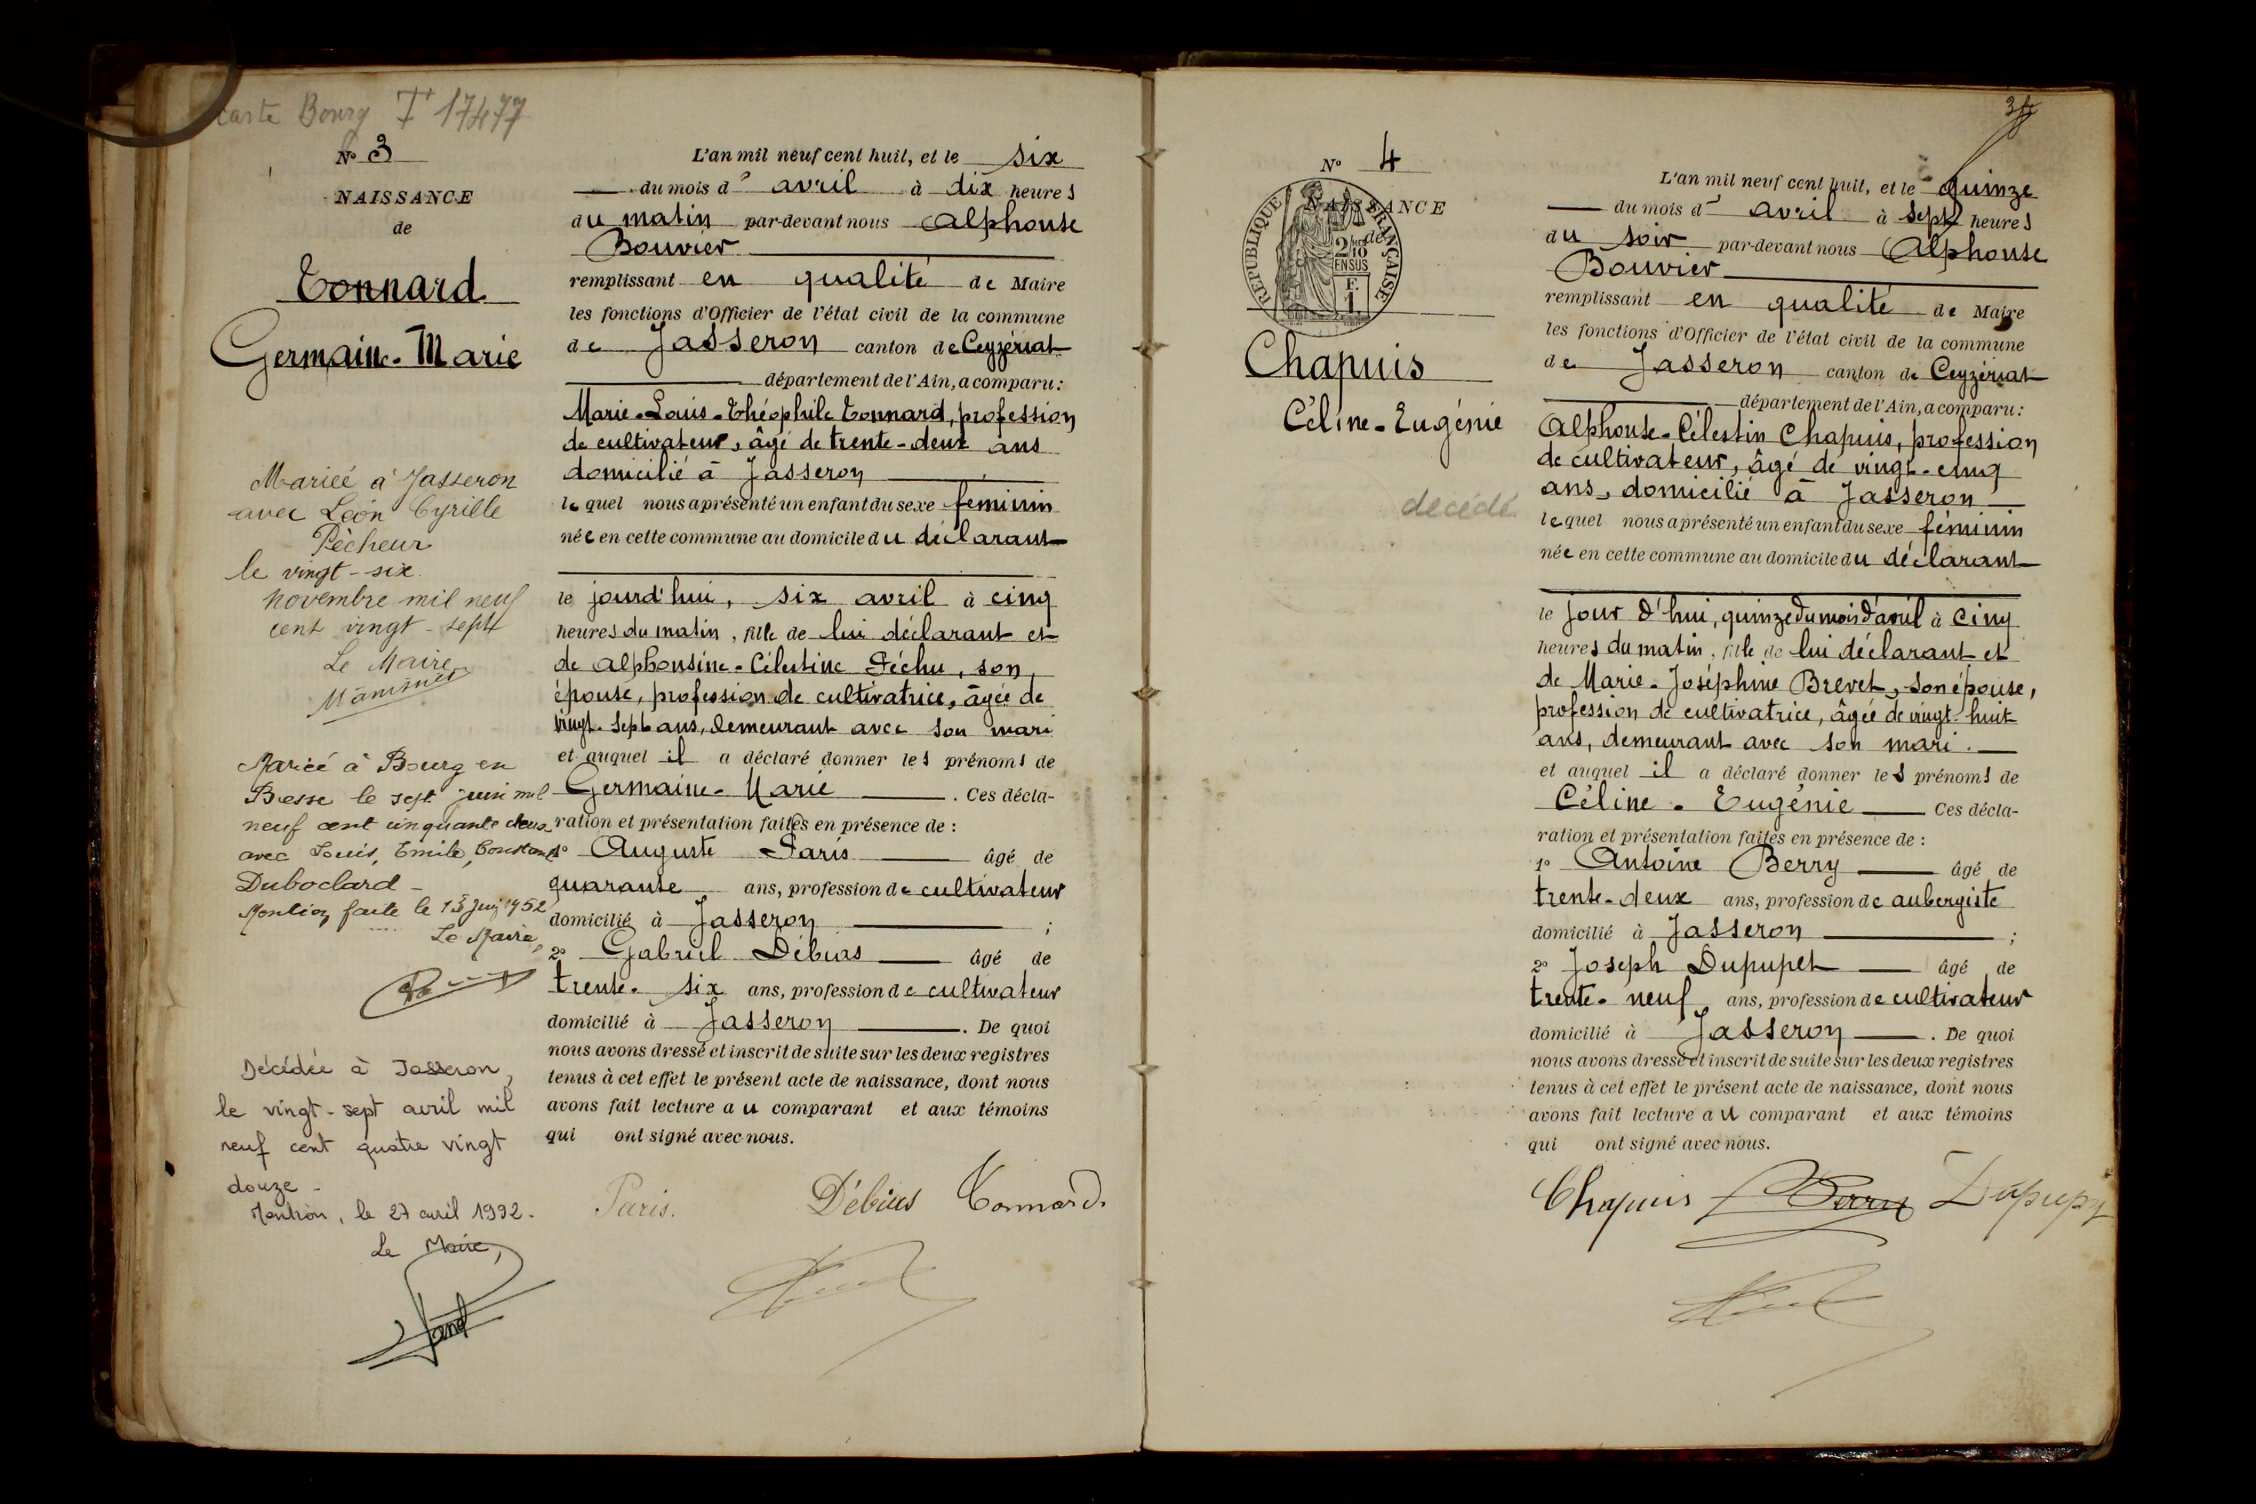 carte Bourg T 17477
N° 3
NAISSANCE
de
Tonnard
Germaine-Marie
Mariée à Jasseron
avec Léon Cyrille
Pêcheur
le vingt-six
novembre mil neuf
cent vingt-sept
Le Maire
Mariée à Bourg en
Bresse le sept juin mil
neuf cent cinquante deux
avec Louis, Emile, Constant
Duboclard -
Mention faite le 13 Juin 1952
Le Maire,
Décédée à Jasseron,
le vingt-sept avril mil
neuf cent quatre vingt
douze -
Mention, le 27 avril 1992.
Le Maire,
L'an mil neuf cent huit, et le six
du mois d' avril à dix heures
du matin par-devant nous Alphonse
Bouvier
remplissant en qualité de Maire
les fonctions d'Officier de l'état civil de la commune
de Jasseron canton de Ceyzériat
département de l'Ain, a comparu :
Marie-Louis-Théophile Tonnard, profession
de cultivateur, âgé de trente-deux ans
domicilié à Jasseron
lequel nous a présenté un enfant du sexe féminin
née en cette commune au domicile du déclarant
le jourd'hui, six avril à cinq
heures du matin, fille de lui déclarant et
de Alphonsine-Célestine Péchu, son
épouse, profession de cultivatrice, âgée de
vingt-sept ans, demeurant avec son mari
et auquel il a déclaré donner les prénoms de
Germaine-Marie . Ces décla-
ration et présentation faites en présence de :
1° Auguste Paris âgé de
quarante ans, profession de cultivateur
domicilié à Jasseron ;
2° Gabriel Débias âgé de
trente-six ans, profession de cultivateur
domicilié à Jasseron . De quoi
nous avons dressé et inscrit de suite sur les deux registres
tenus à cet effet le présent acte de naissance, dont nous
avons fait lecture au comparant et aux témoins
qui ont signé avec nous.
Paris. Débias Tonnard.
N° 4
NAISSANCE
de
RÉPUBLIQUE FRANÇAISE
2/10
EN SUS
F.
1
Chapuis
Céline-Eugénie
décédé
L'an mil neuf cent huit, et le quinze
du mois d' avril à sept heures
du soir par-devant nous Alphonse
Bouvier
remplissant en qualité de Maire
les fonctions d'Officier de l'état civil de la commune
de Jasseron canton de Ceyzériat
département de l'Ain, a comparu :
Alphonse-Célestin Chapuis, profession
de cultivateur, âgé de vingt-cinq
ans, domicilié à Jasseron
lequel nous a présenté un enfant du sexe féminin
née en cette commune au domicile du déclarant
le jour d'hui, quinze du mois d'avril à cinq
heures du matin, fille de lui déclarant et
de Marie-Joséphine Brevet, son épouse,
profession de cultivatrice, âgée de vingt-huit
ans, demeurant avec son mari.
et auquel il a déclaré donner les prénoms de
Céline-Eugénie Ces décla-
ration et présentation faites en présence de :
1° Antoine Berry âgé de
trente-deux ans, profession de aubergiste
domicilié à Jasseron ;
2° Joseph Dupupet âgé de
trente-neuf ans, profession de cultivateur
domicilié à Jasseron . De quoi
nous avons dressé et inscrit de suite sur les deux registres
tenus à cet effet le présent acte de naissance, dont nous
avons fait lecture au comparant et aux témoins
qui ont signé avec nous.
Chapuis Berry Dupupet